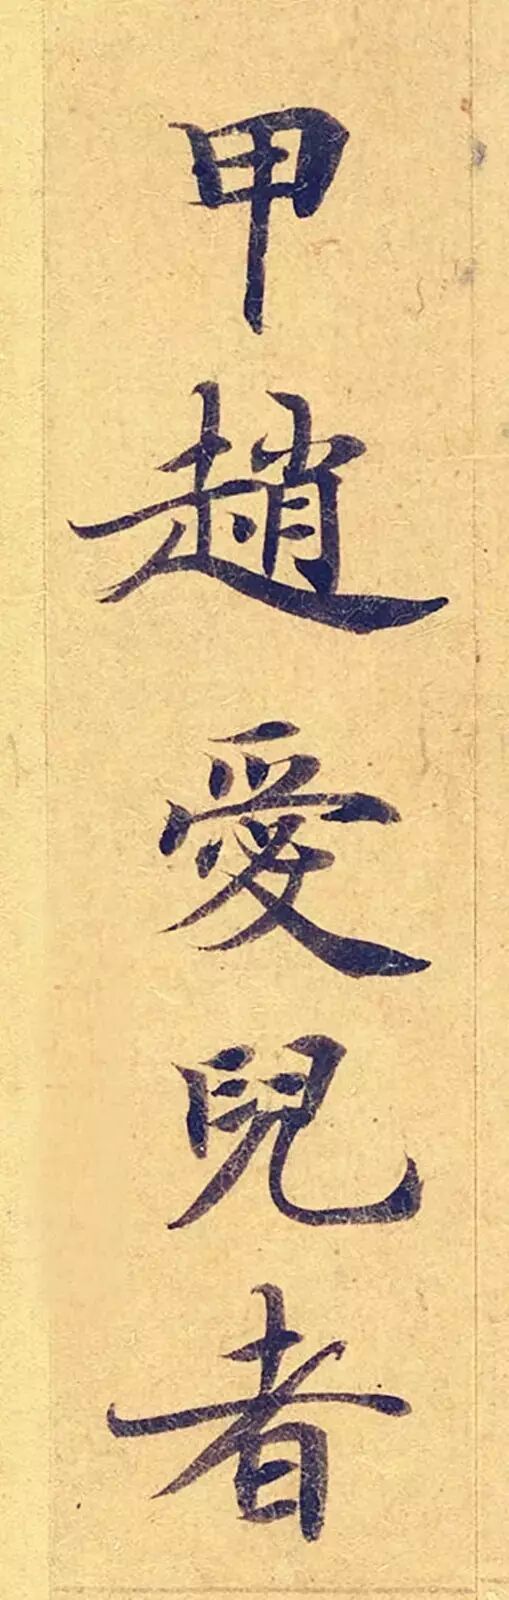 甲趙愛兒者